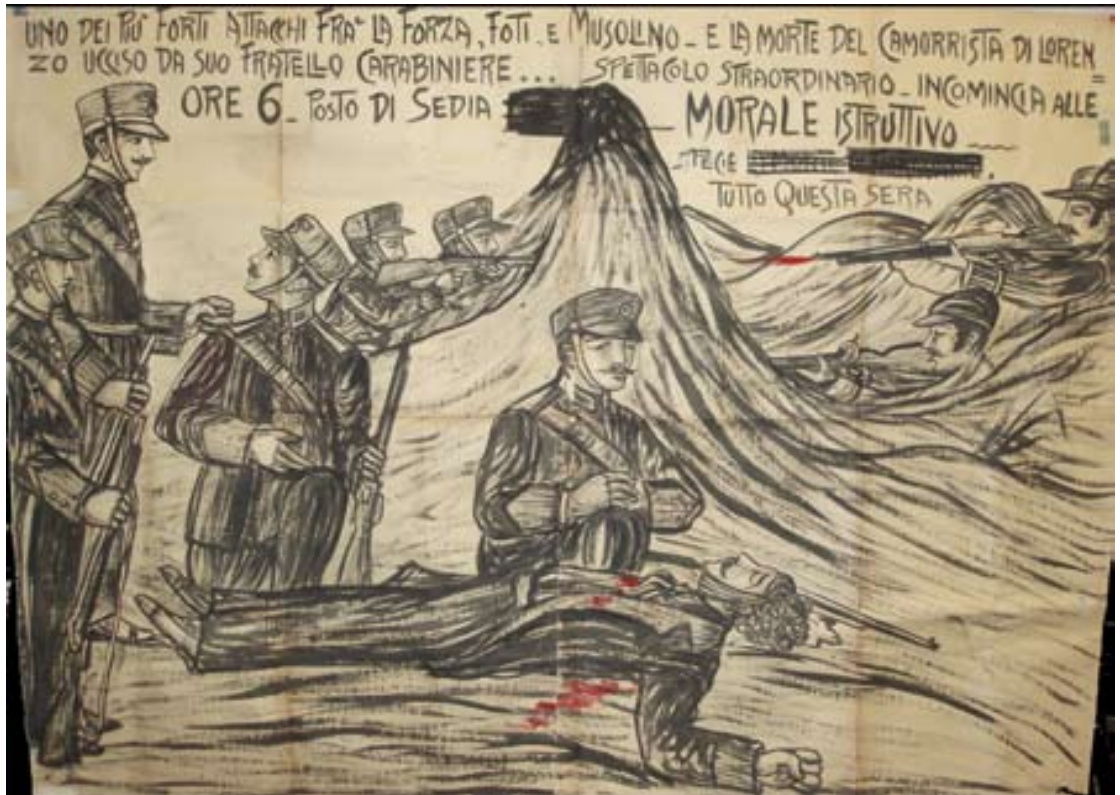 UNO DEI PIÙ FORTI ATTACCHI FRA' LA FORZA, FOTI. E MUSOLINO - E LA MORTE DEL CAMORRISTA DI LOREN =
ZO UCCISO DA SUO FRATELLO CARABINIERE... SPETTACOLO STRAORDINARIO - INCOMINCIA ALLE
ORE 6 - POSTO DI SEDIA MORALE ISTRUTTIVO
TUTTO QUESTA SERA